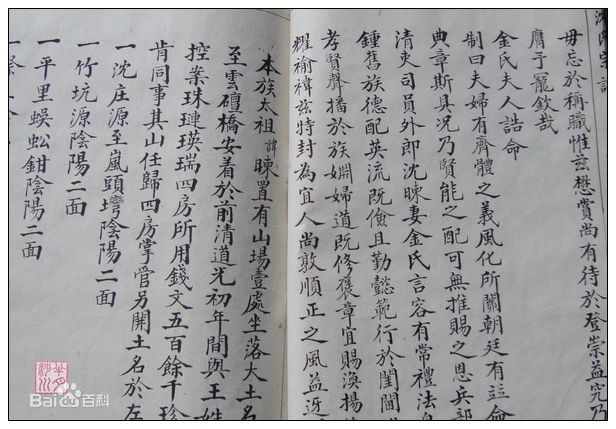 毋忌於稱職惟茲懋賞尚有待於登崇益究乃
膺予寵敘哉
金氏夫人誥命
制曰夫婦有齊體之義風化所關朝廷有竝
典章斯具況乃賢能之配可無推賜之恩兵部
清吏司員外郎沈暕妻金氏言容有常禮法
鍾舊族德配英流既儉且勤懿範行於閨閫
孝賢聲播於族姻婦道既修褒章宜賜渙揚
耀褕褘茲特封為宜人尚敦順正之風益迓
本族太祖諱暕置有山場壹處坐落大土名
至雲橋安着於前清道光初年間與王姓
控案珠璉瑛瑞四房所用錢文五百餘千珍
肯同事其山任歸四房掌管另開土名於左
一沈庄源至嵐頭塆陰陽二面
一竹坑源陰陽二面
一平里蜈蚣鉗陰陽二面
Bai百科